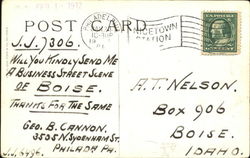 1912
POST CARD.
PHILADELPHIA
NICETOWN
STATION
J.J.7306.
WILL YOU KINDLY SEND ME
A BUSINESS STREET SCENE
OF BOISE.
THANKS FOR THE SAME
GEO. B. CANNON,
3535 N. SYDENHAM ST.
PHILADA PA.
A.T. NELSON.
BOX 906
BOISE.
IDAHO.